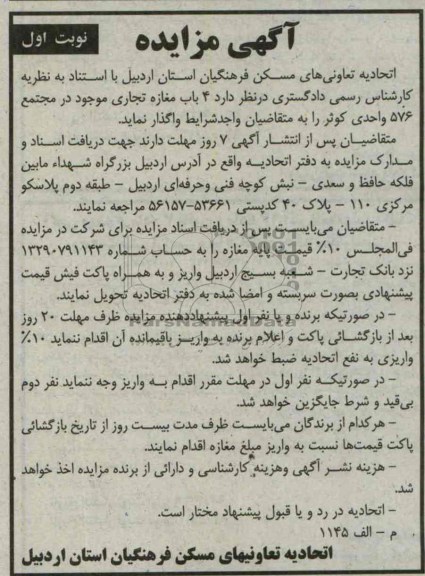 آگهی مزایده
نوبت اول
اتحادیه تعاونی‌های مسکن فرهنگیان استان اردبیل با استناد به نظریه
کارشناس رسمی دادگستری درنظر دارد ۴ باب مغازه تجاری موجود در مجتمع
۵۷۶ واحدی کوثر را به متقاضیان واجدشرایط واگذار نماید.
متقاضیان پس از انتشار آگهی ۷ روز مهلت دارند جهت دریافت اسناد و
مدارک مزایده به دفتر اتحادیه واقع در آدرس اردبیل بزرگراه شهداء مابین
فلکه حافظ و سعدی – نبش کوچه فنی وحرفه‌ای اردبیل – طبقه دوم پلاسکو
مرکزی ۱۱۰ – پلاک ۴۰ کدپستی ۵۳۶۶۱–۵۶۱۵۷ مراجعه نمایند.
– متقاضیان می‌بایست پس از دریافت اسناد مزایده برای شرکت در مزایده
فی‌المجلس ۱۰٪ قیمت پایه مغازه را به حساب شماره ۱۳۲۹۰۷۹۱۱۴۳
نزد بانک تجارت – شعبه بسیج اردبیل واریز و به همراه پاکت فیش قیمت
پیشنهادی بصورت سربسته و امضا شده به دفتر اتحادیه تحویل نمایند.
– در صورتیکه برنده و یا نفر اول پیشنهاددهنده مزایده ظرف مهلت ۲۰ روز
بعد از بازگشائی پاکت و اعلام برنده به واریز باقیمانده آن اقدام ننماید ۱۰٪
واریزی به نفع اتحادیه ضبط خواهد شد.
– در صورتیکه نفر اول در مهلت مقرر اقدام به واریز وجه ننماید نفر دوم
بی‌قید و شرط جایگزین خواهد شد.
– هرکدام از برندگان می‌بایست ظرف مدت بیست روز از تاریخ بازگشائی
پاکت قیمت‌ها نسبت به واریز مبلغ مغازه اقدام نمایند.
– هزینه نشر آگهی وهزینه کارشناسی و دارائی از برنده مزایده اخذ خواهد
شد.
– اتحادیه در رد و یا قبول پیشنهاد مختار است.
م – الف ۱۱۴۵
اتحادیه تعاونیهای مسکن فرهنگیان استان اردبیل